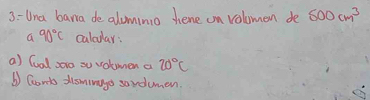 3- Una barra de aluminio tiene un volumen de 500 cm³
a 90°C calcular:
a) Cual sera su volumen a 20°C
b) Cuanto disminuye su volumen.